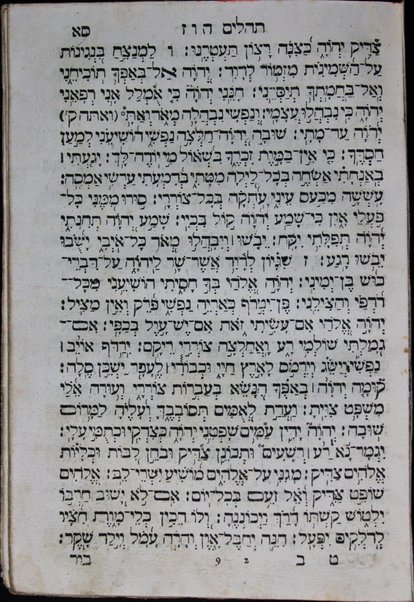 תהלים ה ו ז סא
צַדִּיק יְהוָה כַּצִּנָּה רָצוֹן תַּעְטְרֶנּוּ׃ ו לַמְנַצֵּחַ בִּנְגִינוֹת
עַל־הַשְּׁמִינִית מִזְמוֹר לְדָוִד׃ יְהוָה אַל־בְּאַפְּךָ תוֹכִיחֵנִי
וְאַל־בַּחֲמָתְךָ תְיַסְּרֵנִי׃ חָנֵּנִי יְהוָה כִּי אֻמְלַל אָנִי רְפָאֵנִי
יְהוָה כִּי נִבְהֲלוּ עֲצָמָי׃ וְנַפְשִׁי נִבְהֲלָה מְאֹד וְאַתָּ׳ (ואתה ק׳)
יְהוָה עַד־מָתָי׃ שׁוּבָה יְהוָה חַלְּצָה נַפְשִׁי הוֹשִׁיעֵנִי לְמַעַן
חַסְדֶּךָ׃ כִּי אֵין בַּמָּוֶת זִכְרֶךָ בִּשְׁאוֹל מִי יוֹדֶה־לָּךְ׃ יָגַעְתִּי ׀
בְּאַנְחָתִי אַשְׂחֶה בְכָל־לַיְלָה מִטָּתִי בְּדִמְעָתִי עַרְשִׂי אַמְסֶה׃
עָשְׁשָׁה מִכַּעַס עֵינִי עָתְקָה בְּכָל־צוֹרְרָי׃ סוּרוּ מִמֶּנִּי כָּל־
פֹּעֲלֵי אָוֶן כִּי־שָׁמַע יְהוָה קוֹל בִּכְיִי׃ שָׁמַע יְהוָה תְּחִנָּתִי
יְהוָה תְּפִלָּתִי יִקָּח׃ יֵבֹשׁוּ ׀ וְיִבָּהֲלוּ מְאֹד כָּל־אֹיְבָי יָשֻׁבוּ
יֵבֹשׁוּ רָגַע׃ ז שִׁגָּיוֹן לְדָוִד אֲשֶׁר־שָׁר לַיהוָה עַל־דִּבְרֵי־
כוּשׁ בֶּן־יְמִינִי׃ יְהוָה אֱלֹהַי בְּךָ חָסִיתִי הוֹשִׁיעֵנִי מִכָּל־
רֹדְפַי וְהַצִּילֵנִי׃ פֶּן־יִטְרֹף כְּאַרְיֵה נַפְשִׁי פֹּרֵק וְאֵין מַצִּיל׃
יְהוָה אֱלֹהַי אִם־עָשִׂיתִי זֹאת אִם־יֶשׁ־עָוֶל בְּכַפָּי׃ אִם־
גָּמַלְתִּי שׁוֹלְמִי רָע וָאֲחַלְּצָה צוֹרְרִי רֵיקָם׃ יִרַדֹּף אוֹיֵב ׀
נַפְשִׁי וְיַשֵּׂג וְיִרְמֹס לָאָרֶץ חַיָּי וּכְבוֹדִי ׀ לֶעָפָר יַשְׁכֵּן סֶלָה׃
קוּמָה יְהוָה ׀ בְּאַפֶּךָ הִנָּשֵׂא בְּעַבְרוֹת צוֹרְרָי וְעוּרָה אֵלַי
מִשְׁפָּט צִוִּיתָ׃ וַעֲדַת לְאֻמִּים תְּסוֹבְבֶךָּ וְעָלֶיהָ לַמָּרוֹם
שׁוּבָה׃ יְהוָה יָדִין עַמִּים שָׁפְטֵנִי יְהוָה כְּצִדְקִי וּכְתֻמִּי עָלָי׃
יִגְמָר־נָא רַע ׀ רְשָׁעִים וּתְכוֹנֵן צַדִּיק וּבֹחֵן לִבּוֹת וּכְלָיוֹת
אֱלֹהִים צַדִּיק׃ מָגִנִּי עַל־אֱלֹהִים מוֹשִׁיעַ יִשְׁרֵי־לֵב׃ אֱלֹהִים
שׁוֹפֵט צַדִּיק וְאֵל זֹעֵם בְּכָל־יוֹם׃ אִם־לֹא יָשׁוּב חַרְבּוֹ
יִלְטוֹשׁ קַשְׁתּוֹ דָרַךְ וַיְכוֹנְנֶהָ׃ וְלוֹ הֵכִין כְּלֵי־מָוֶת חִצָּיו
לְדֹלְקִים יִפְעָל׃ הִנֵּה יְחַבֶּל־אָוֶן וְהָרָה עָמָל וְיָלַד שָׁקֶר׃
ט ב 9 2 בור